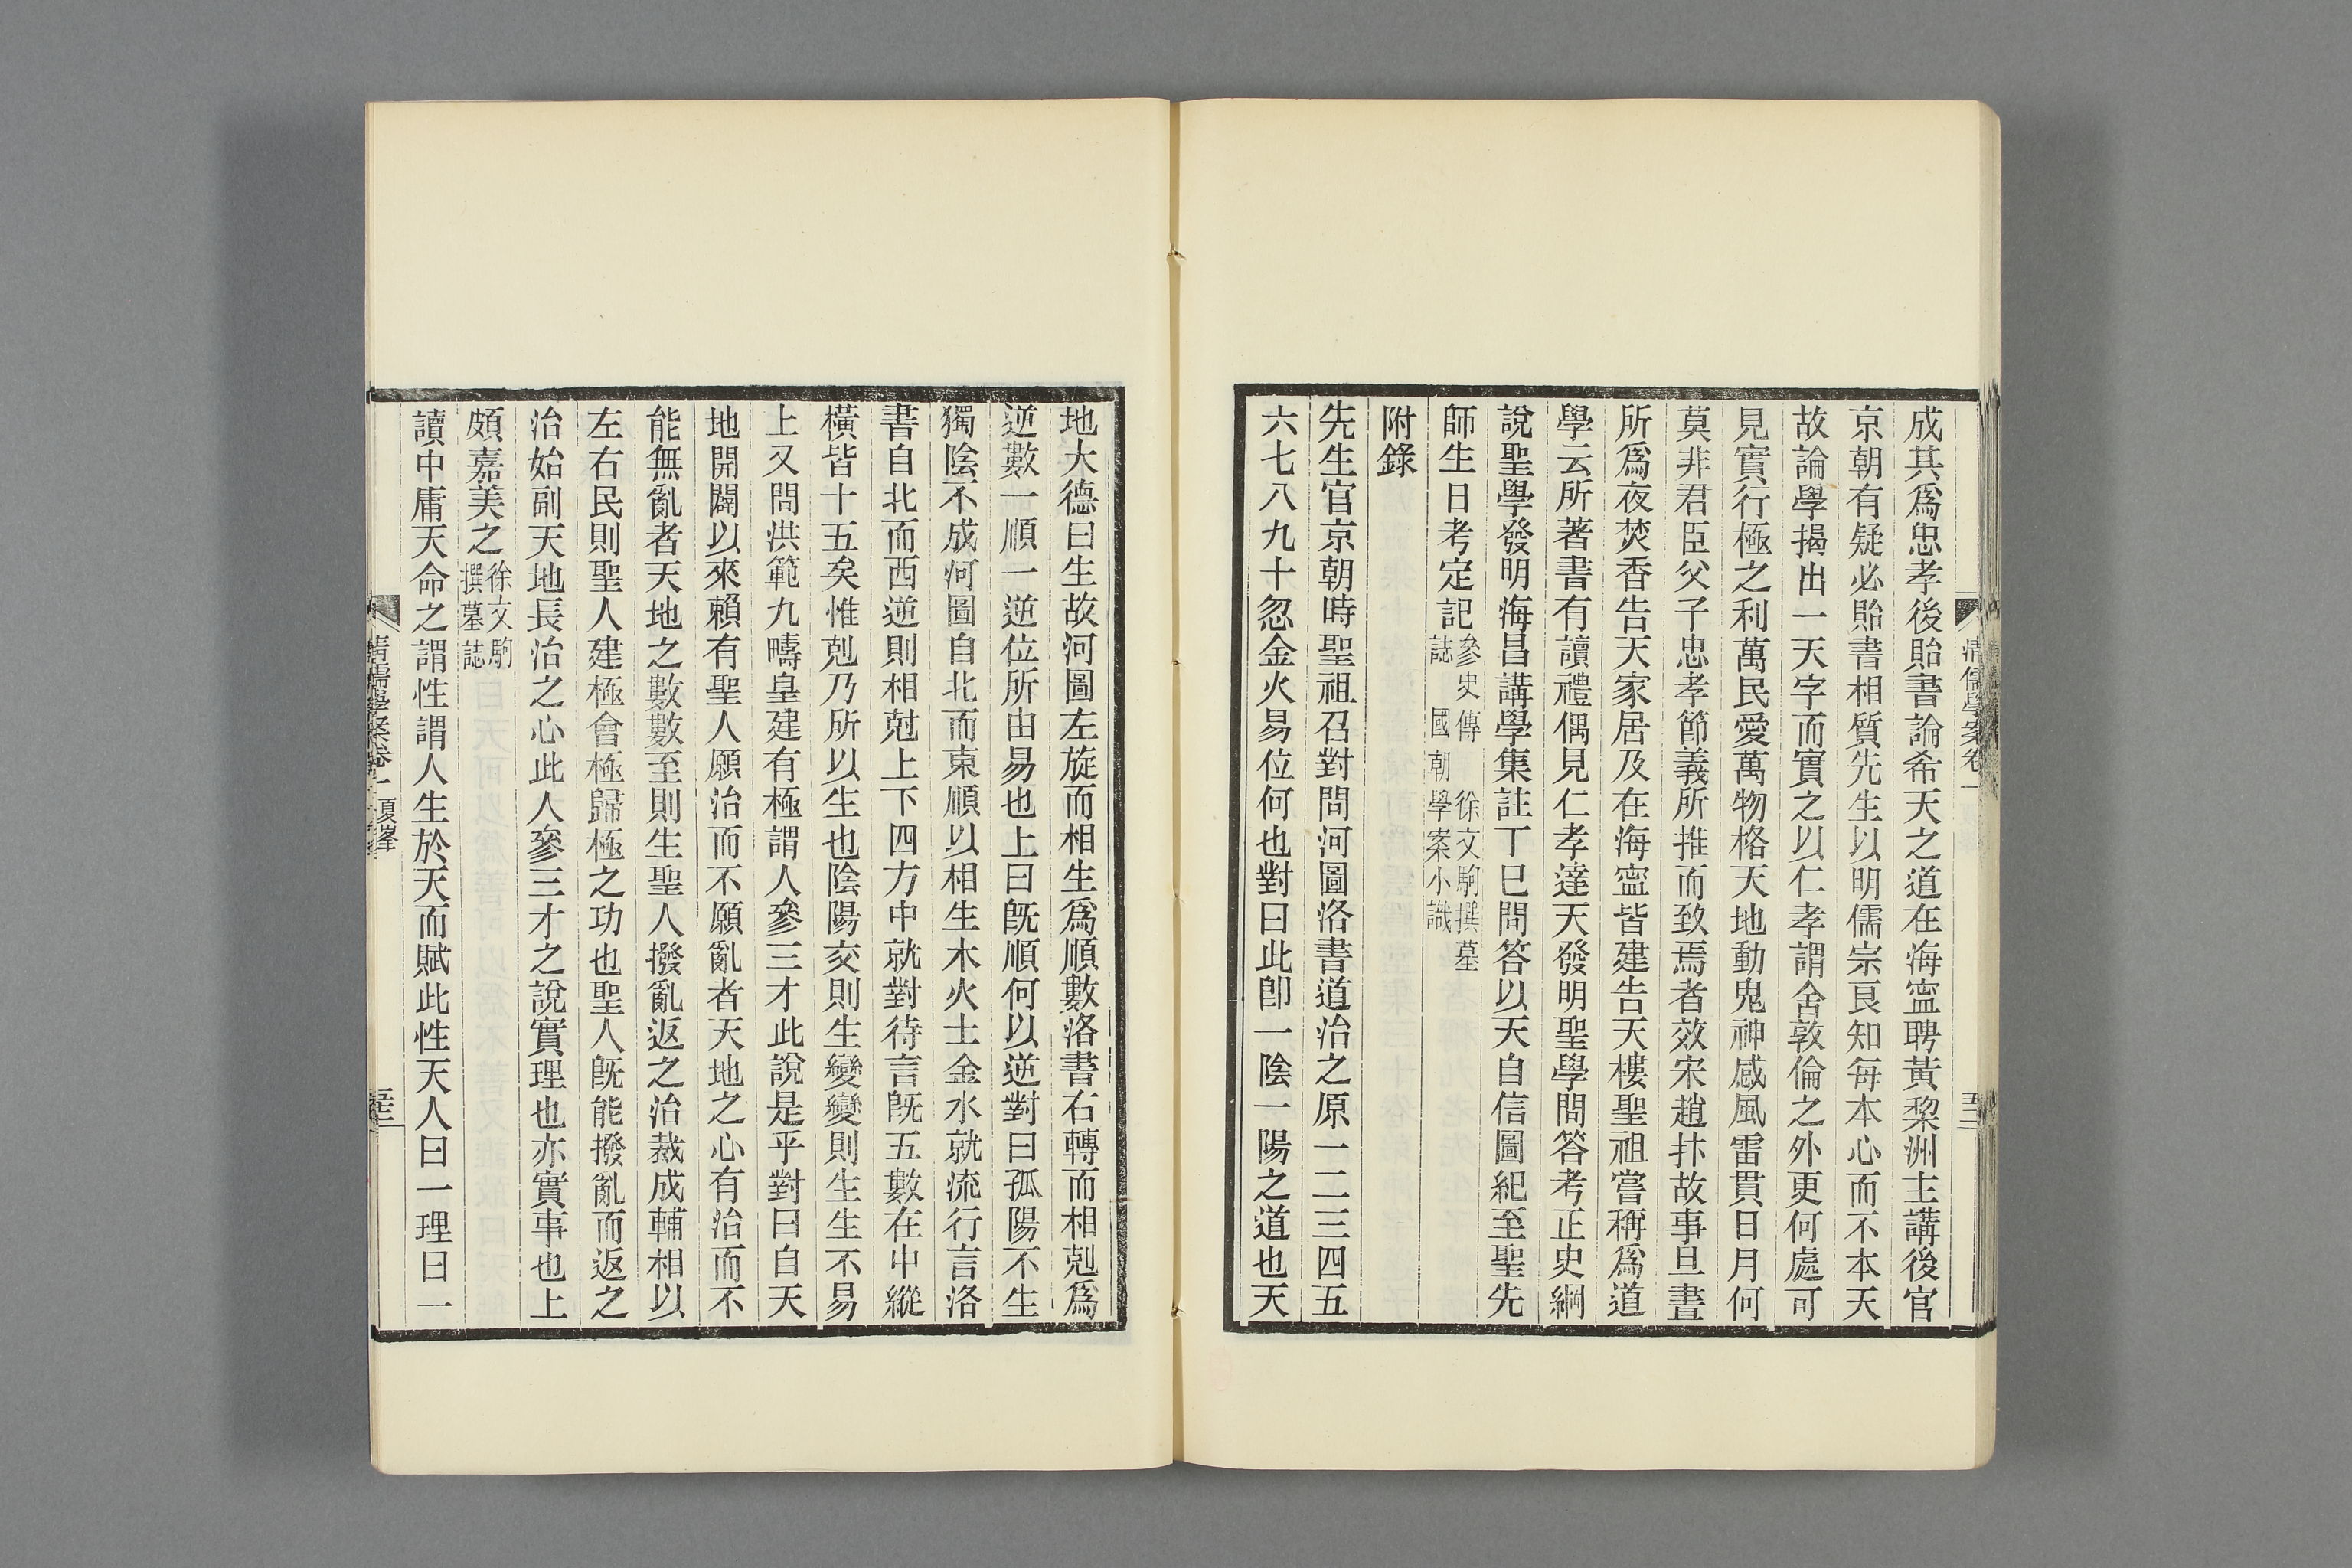 清儒學案卷一
成其爲忠孝後貽書論希天之道在海寍聘黃棃洲主講後官
京朝有疑必貽書相質先生以明儒宗良知每本心而不本天
故論學揭出一天字而實之以仁孝謂舍敦倫之外更何處可
見實行極之利萬民愛萬物格天地動鬼神感風雷貫日月何
莫非君臣父子忠孝節義所推而致焉者效宋趙抃故事旦晝
所爲夜焚香告天家居及在海寍皆建告天樓聖祖嘗稱爲道
學云所著書有讀禮偶見仁孝達天發明聖學問答考正史綱
說聖學發明海昌講學集註丁巳問答以天自信圖紀至聖先
師生日考定記
參史傳 徐文駒撰墓
誌 國朝學案小識
附錄
先生官京朝時聖祖召對問河圖洛書道治之原一二三四五
六七八九十忽金火易位何也對曰此卽一陰一陽之道也天
地大德曰生故河圖左旋而相生爲順數洛書右轉而相剋爲
逆數一順一逆位所由易也上曰旣順何以逆對曰孤陽不生
獨陰不成河圖自北而東順以相生木火土金水就流行言洛
書自北而西逆則相尅上下四方中就對待言旣五數在中縱
橫皆十五矣惟剋乃所以生也陰陽交則生變變則生生不易
上又問洪範九疇皇建有極謂人參三才此說是乎對曰自天
地開闢以來賴有聖人願治而不願亂者天地之心有治而不
能無亂者天地之數數至則生聖人撥亂返之治裁成輔相以
左右民則聖人建極會極歸極之功也聖人旣能撥亂而返之
治始副天地長治之心此人參三才之說實理也亦實事也上
頗嘉美之
徐文駒
撰墓誌
讀中庸天命之謂性謂人生於天而賦此性天人曰一理曰一
清儒學案卷一 夏峯